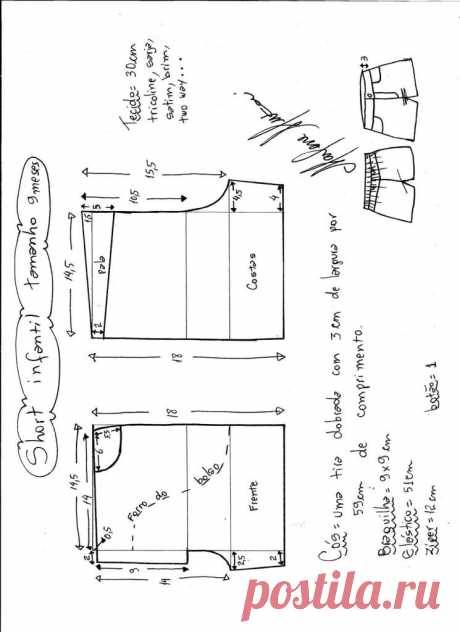 Short infantil tamanho 9 meses
Tecido = 30cm
tricoline, sarja,
satim, brim,
two way...
3
15,5
10,5
1,5
5
14,5
Pala
2
4,5
4
Costas
18
18
14,5
14
6
5,5
Forro do bolso
Frente
0,5
2
9
14
2,5
2
Cós = uma tira dobrada com 3 cm de largura por
59cm de comprimento.
Braguilha = 9x9 cm
Elástico = 51cm
Zíper = 12 cm
botão = 1
postila.ru